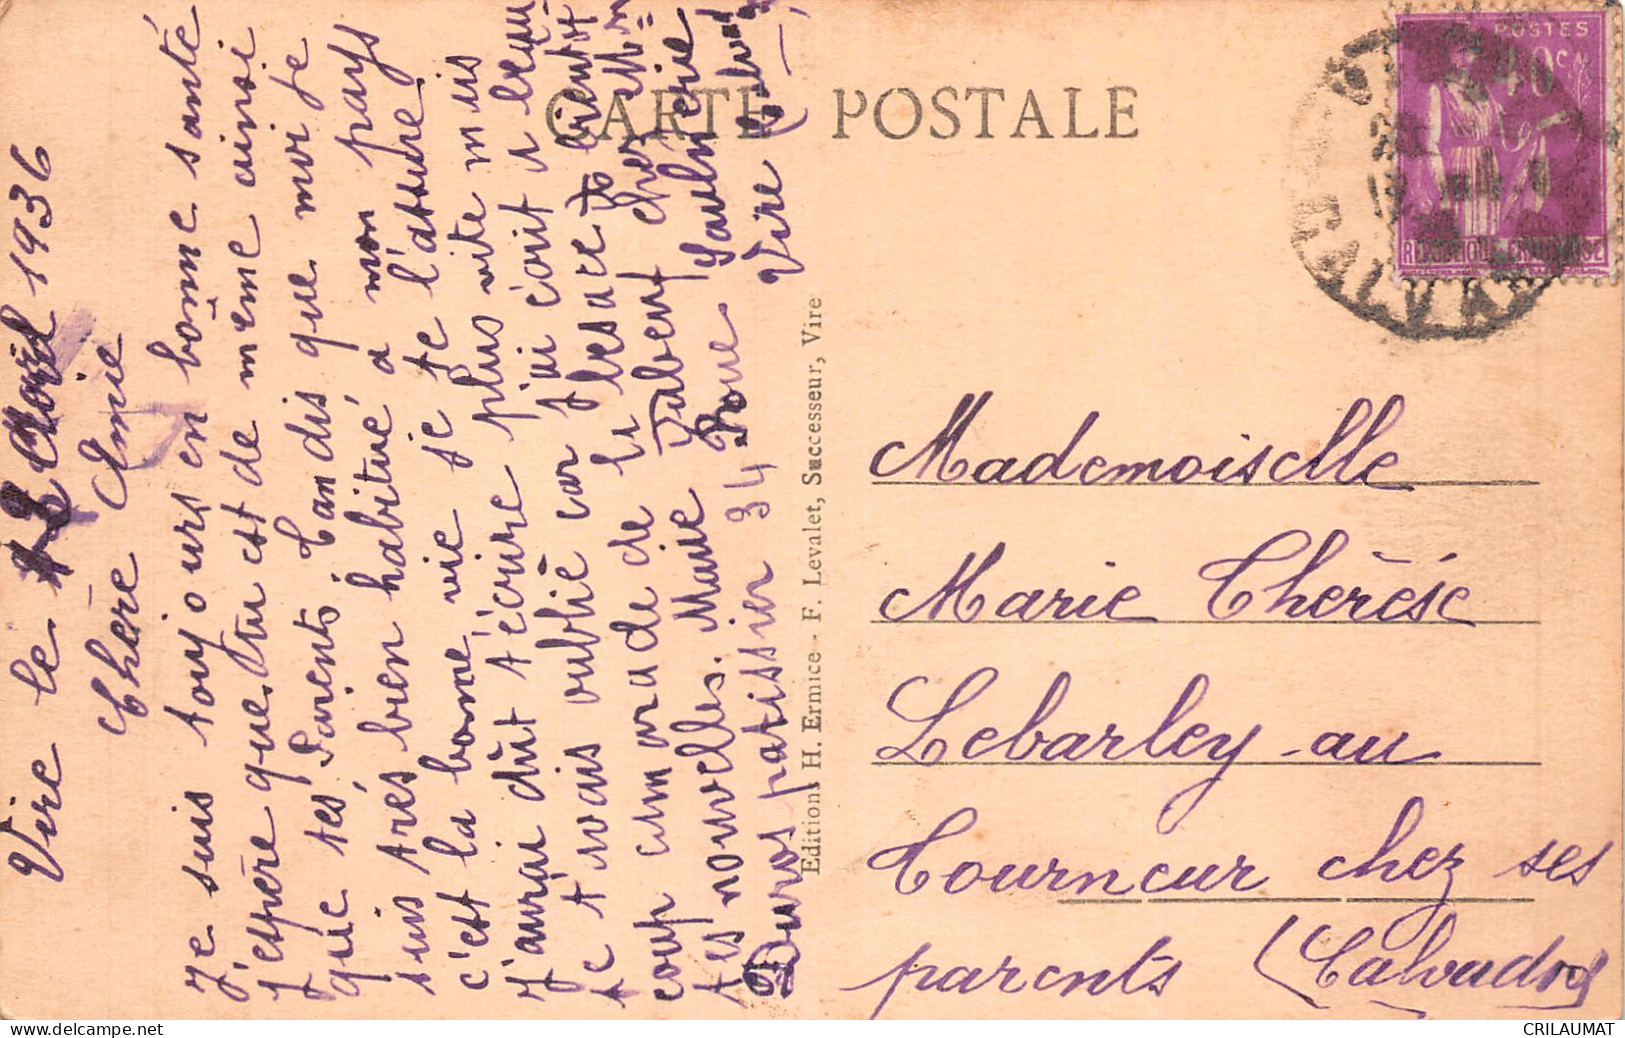 CARTE POSTALE
Vire le 12 Avril 1936
Chère Amie
Je suis toujours en bonne santé
j'espère que tu est de même ainsi
que tes Parents. Tandis que moi je
suis très bien habitué a mon pays
c'est la bonne vie je te l'assure
J'aurai dût t'écrire plus vite mais
je t'avais oublié car j'ai écrit a beau
coup camarade de le Besace
tes nouvelles. Marie Fabert chez
Duros patissier 34 Rue Saulnerie
Vire Calvad
Editions H. Ermice - F. Levalet, Successeur, Vire
POSTES
40c
REPUBLIQUE FRANCAISE
CALVADOS
Mademoiselle
Marie Thérèse
Lebarley au
Tourneur chez ses
parents (Calvados)
CRILAUMAT